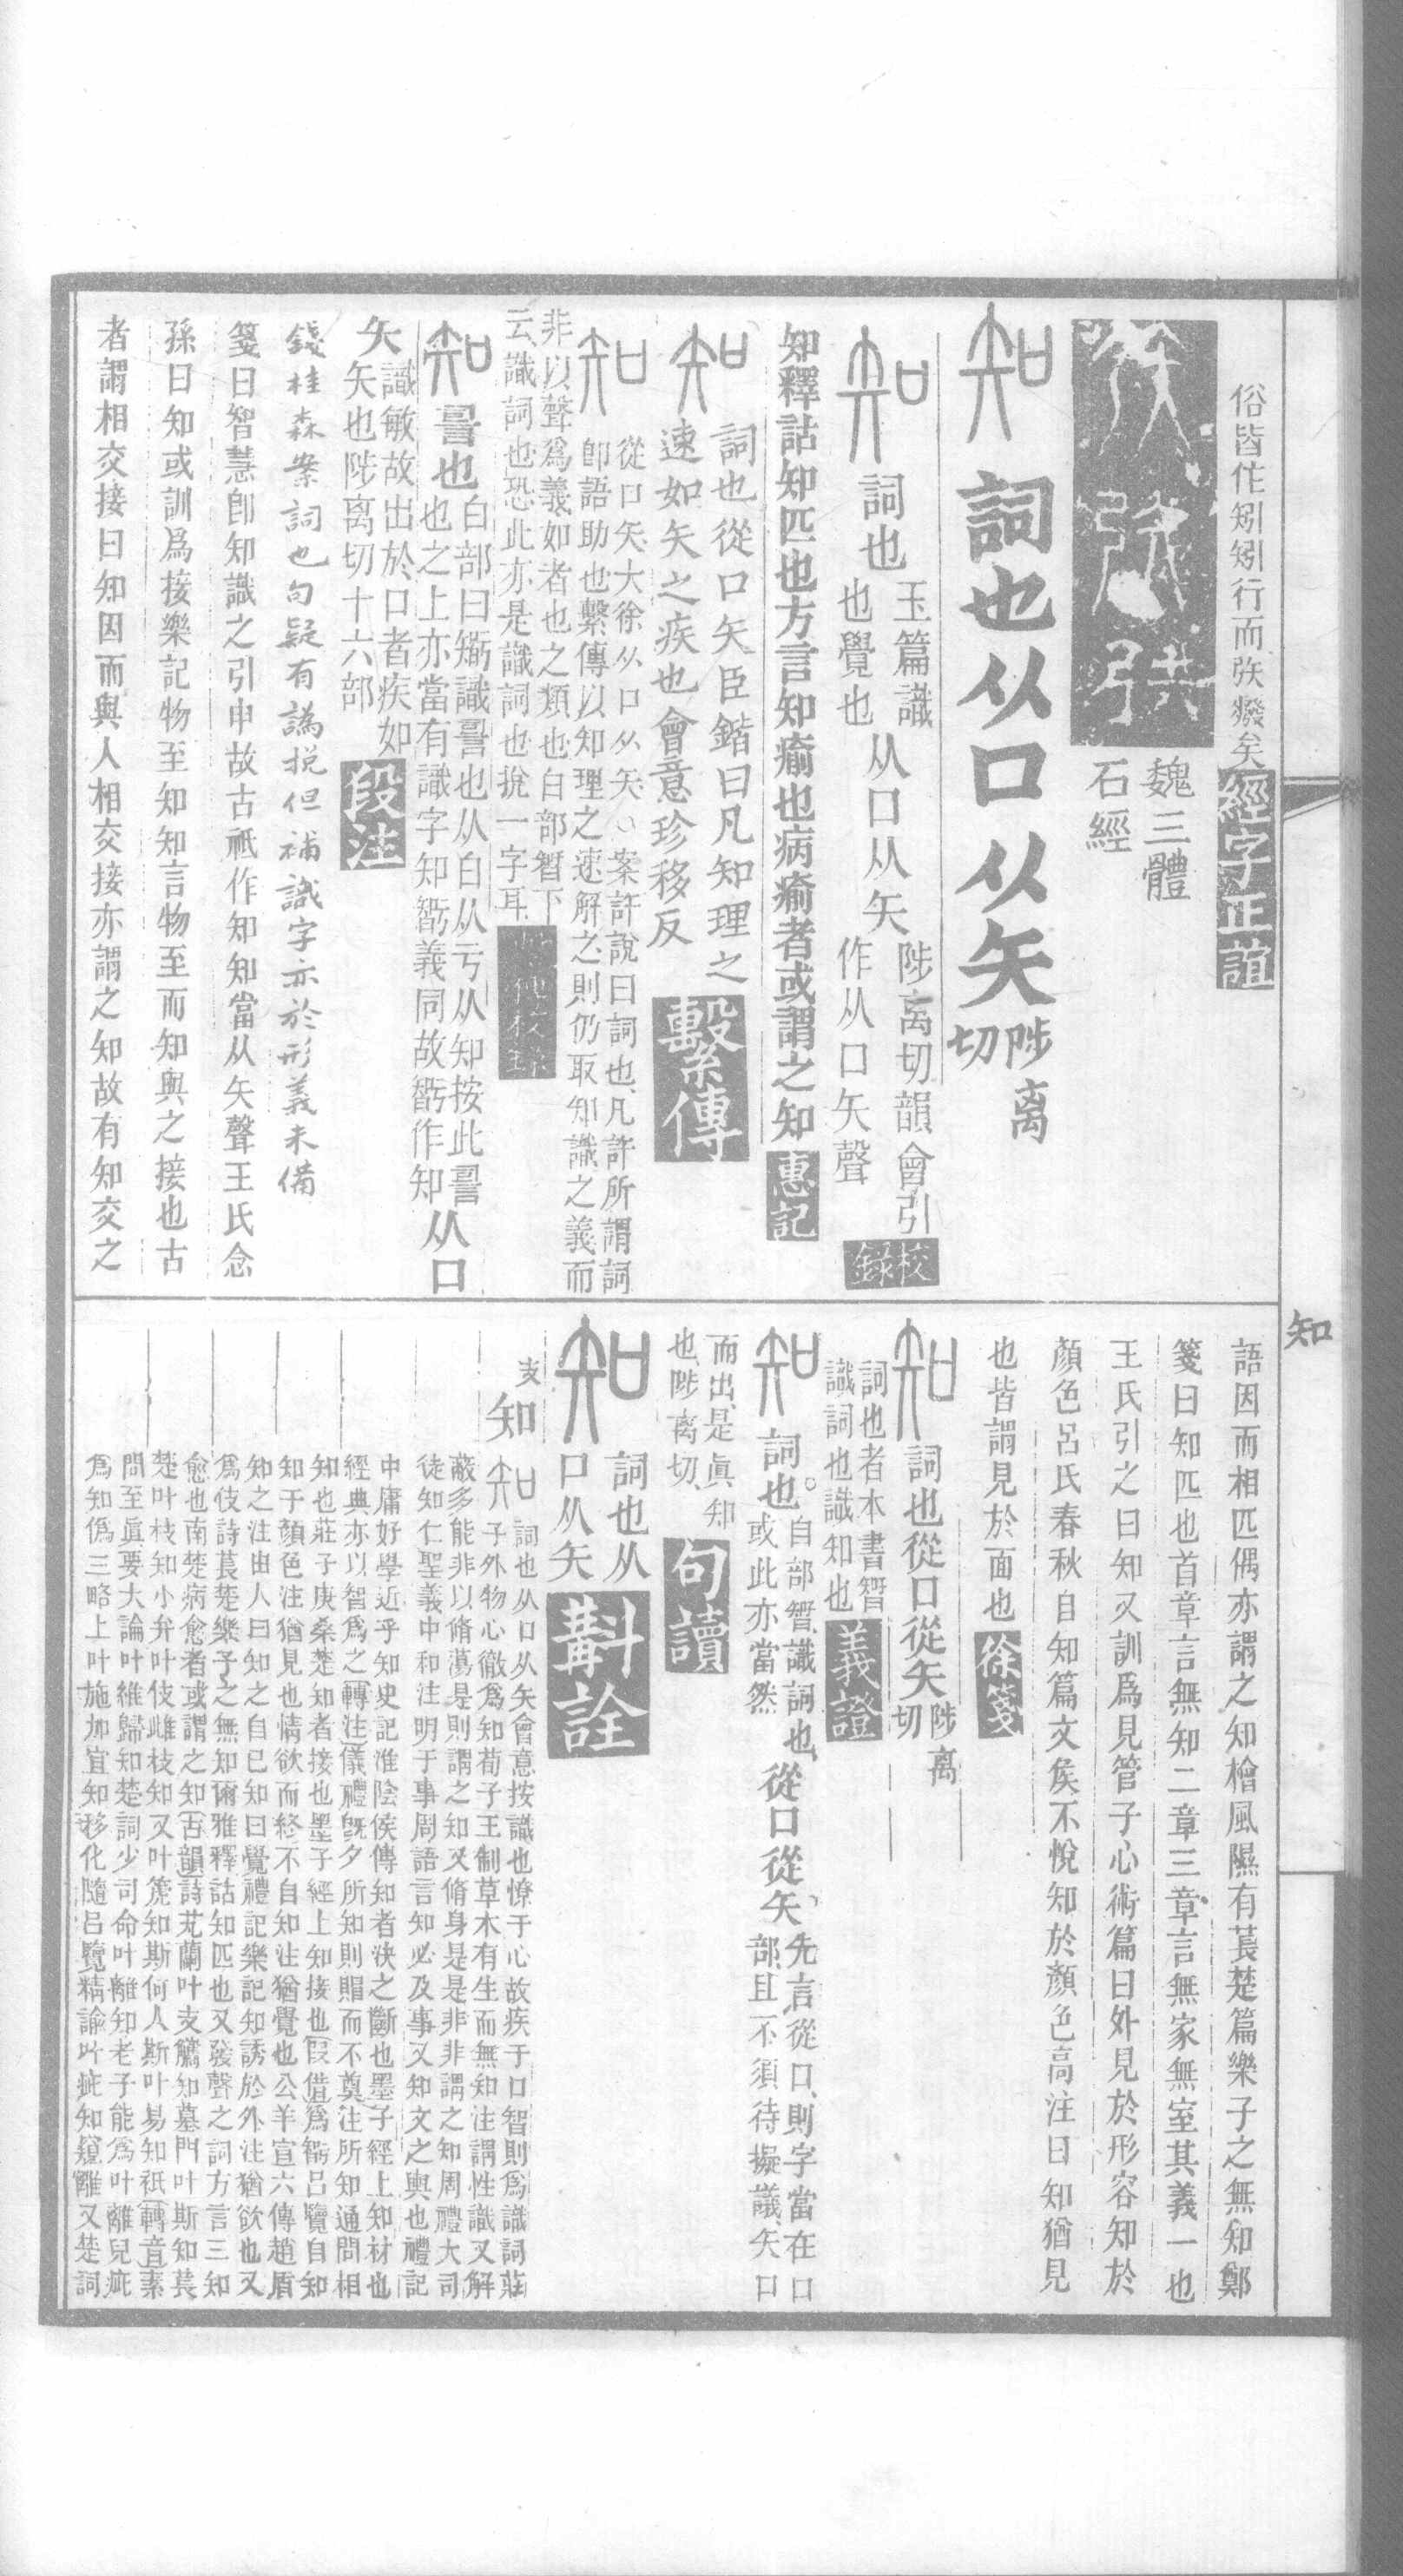 俗皆作矧矧行而矤癈矣 經字正誼
魏三體
石經
知 詞也从口从矢 陟离切
知 詞也 玉篇識也覺也 从口从矢 陟离切韻會引作从口矢聲 校錄
知釋詁知匹也方言知瘉也病瘉者或謂之知 惠記
知 詞也從口矢臣鍇曰凡知理之
速如矢之疾也會意珍移反 繫傳
知 從口矢大徐从口从矢○案許說曰詞也凡許所謂詞
卽語助也繫傳以知理之速解之則仍取知識之義而
非以聲爲義如者也之類也白部𥏼下
云識詞也恐此亦是識詞也挩一字耳
知 䛐也 白部曰𥏼識䛐也从白从亏从知按此䛐
也之上亦當有識字知𥏼義同故𥏼作知 从口
矢 識敏故出於口者疾如
矢也陟离切十六部 段注
錢桂森案詞也句疑有譌挩但補識字亦於形義未備
箋曰智慧卽知識之引申故古祇作知知當从矢聲王氏念
孫曰知或訓爲接樂記物至知知言物至而知與之接也古
者謂相交接曰知因而與人相交接亦謂之知故有知交之
知
語因而相匹偶亦謂之知檜風隰有萇楚篇樂子之無知鄭
箋曰知匹也首章言無知二章三章言無家無室其義一也
王氏引之曰知又訓爲見管子心術篇曰外見於形容知於
顏色呂氏春秋自知篇文矦不悅知於顏色高注曰知猶見
也皆謂見於面也 徐箋
知 詞也從口從矢 陟离切
詞也者本書𥏼
識詞也識知也 義證
知 詞也。 白部𥏼識詞也
或此亦當然 從口從矢、 先言從口、則字當在口
部、且不須待擬議、矢口
而出、是眞知
也、陟离切、 句讀
知 詞也从
口从矢 斠詮
支 知 知 詞也从口从矢會意按識也憭于心故疾于口智則爲識詞莊
子外物心徹爲知荀子王制草木有生而無知注謂性識又解
蔽多能非以脩蕩是則謂之知又脩身是是非非謂之知周禮大司
徒知仁聖義中和注明于事周語言知必及事又知文之輿也禮記
中庸好學近乎知史記淮陰侯傳知者決之斷也墨子經上知材也
經典亦以智爲之轉注儀禮旣夕所知則賵而不奠注所知通問相
知也莊子庚桑楚知者接也墨子經上知接也叚借爲𥏼呂覽自知
知于顏色注猶見也情欲而終不自知注猶覺也公羊宣六傳趙盾
知之注由人曰知之自己知曰覺禮記樂記知誘於外注猶欲也又
爲伎詩萇楚樂子之無知爾雅釋詁知匹也又發聲之詞方言三知
愈也南楚病愈者或謂之知古韻詩芄蘭叶支觿知墓門叶斯知萇
楚叶枝知小弁叶伎雌枝知又叶篪知斯何人斯叶易知祇轉音素
問至眞要大論叶維歸知楚詞少司命叶離知老子能爲叶離兒疵
爲知僞三略上叶施加宜知移化隨呂覽精諭叶疵知窺離又楚詞